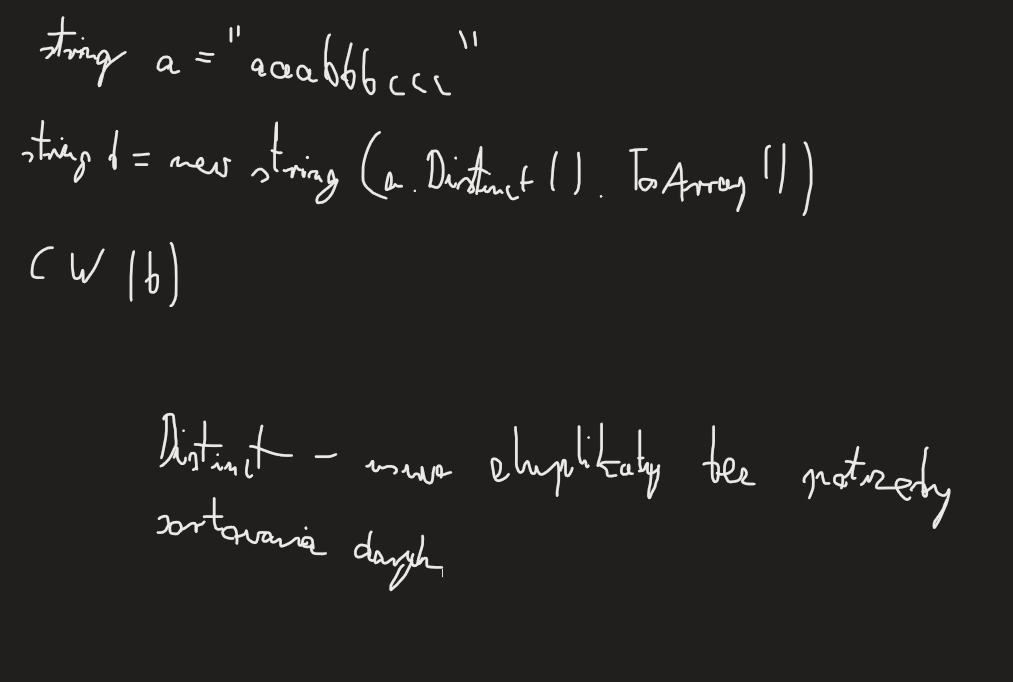 string a = "aaabbbccc"
string b = new string (a.Distinct().ToArray())
CW (b)
Distinct - usuwa duplikaty bez potrzeby
sortowania danych